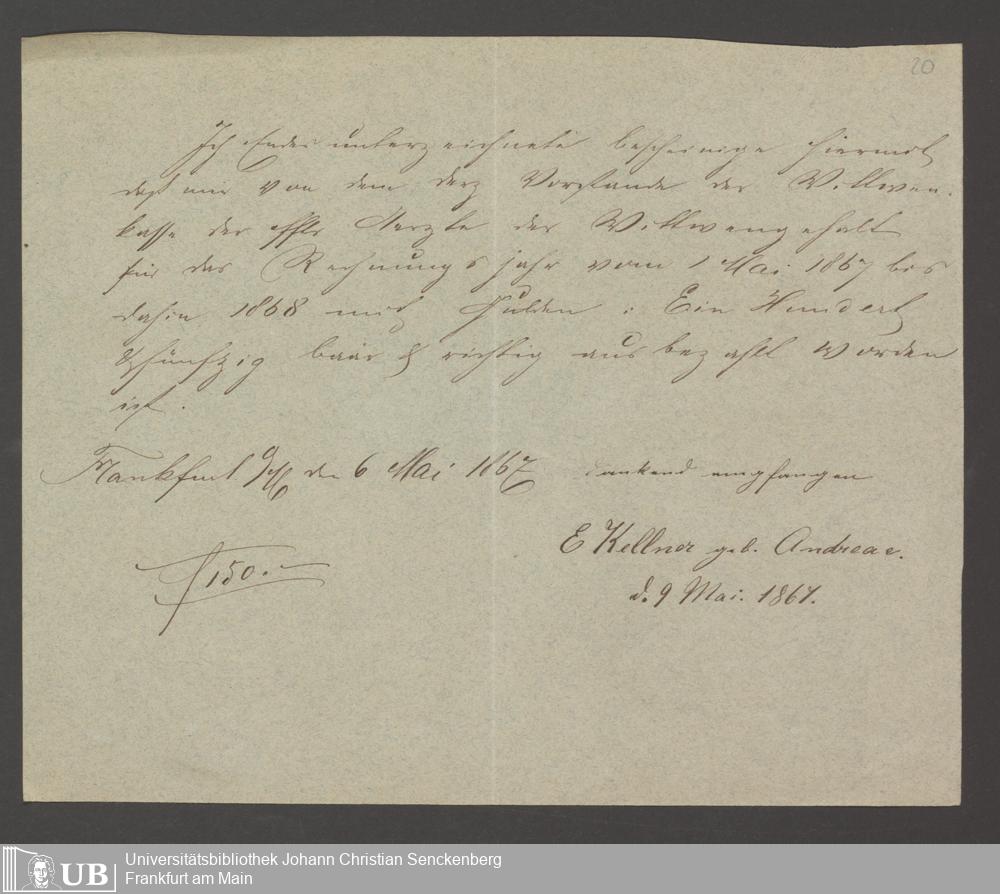 20
Ich Endesunterzeichnete bescheinige hiermit
daß mir von dem derz Vorstande der Wittwen-
kasse der Aerzte der Wittwengehalt
für das Rechnungsjahr vom 1 Mai 1867 bis
dahin 1868 mit Gulden : Ein Hundert
& fünfzig baar & richtig ausbezahlt worden
ist.
Frankfurt a/M den 6 Mai 1867 dankend empfangen
E Kellner geb. Andreae.
d. 9 Mai. 1867.
f 150.—
UB
Universitätsbibliothek Johann Christian Senckenberg
Frankfurt am Main